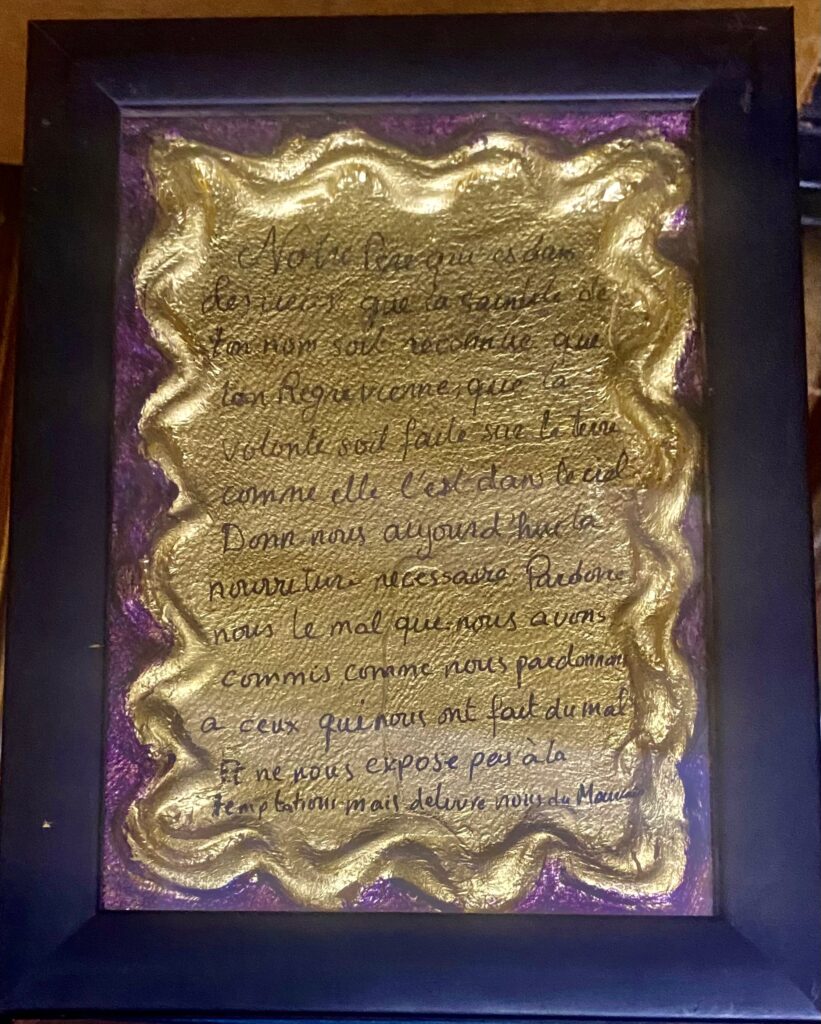 Notre Père qui es dans
les cieux que la sainteté de
ton nom soit reconnue que
ton Règne vienne, que la
volonté soit faite sur la terre
comme elle l'est dans le ciel
Donn nous aujourd'hui la
nourriture necessaire. Pardonne
nous le mal que nous avons
commis, comme nous pardonnons
a ceux qui nous ont fait du mal
Et ne nous expose pas à la
temptation mais delivre nous du Mauvais